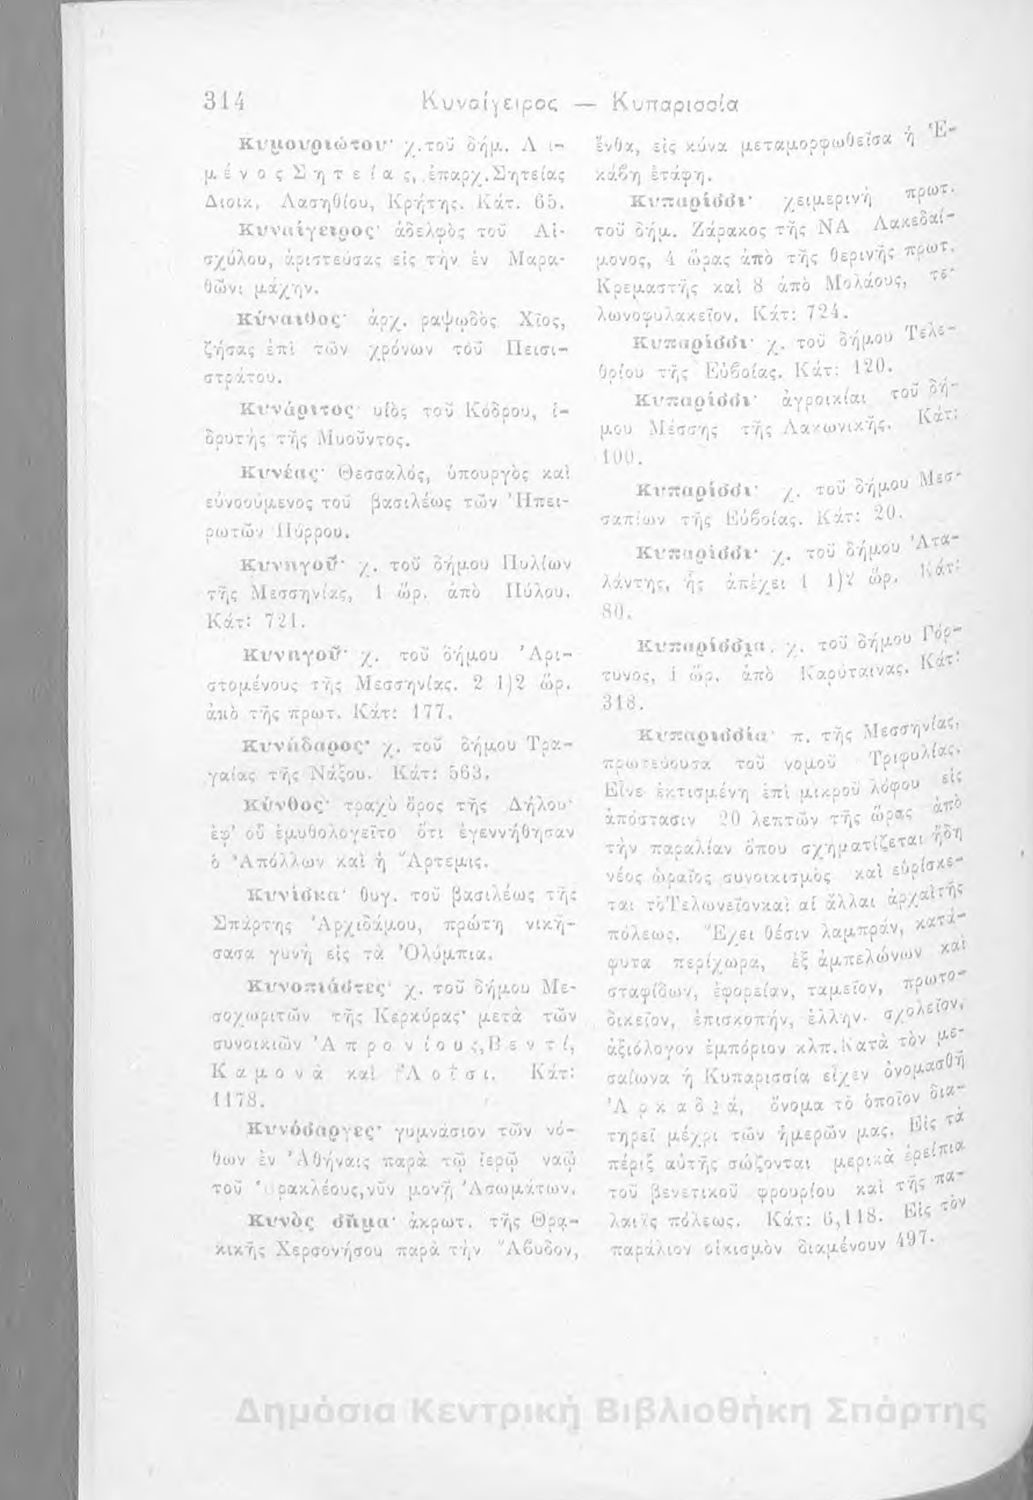 314 Κυναίγειρος — Κυπαρισσία
Κυμουριώτου· χ. τοῦ δήμ. Λι-
μένος Σητείας, ἐπαρχ. Σητείας
Διοικ. Λασηθίου, Κρήτης. Κάτ. 65.
Κυναίγειρος· ἀδελφὸς τοῦ Αἰ-
σχύλου, ἀριστεύσας εἰς τὴν ἐν Μαρα-
θῶνι μάχην.
Κύναιθος· ἀρχ. ραψῳδὸς Χῖος,
ζήσας ἐπὶ τῶν χρόνων τοῦ Πεισι-
στράτου.
Κυνάριτος· υἱὸς τοῦ Κόδρου, ἱ-
δρυτὴς τῆς Μυοῦντος.
Κυνέας· Θεσσαλός, ὑπουργὸς καὶ
εὐνοούμενος τοῦ βασιλέως τῶν Ἠπει-
ρωτῶν Πύρρου.
Κυνηγοῦ· χ. τοῦ δήμου Πυλίων
τῆς Μεσσηνίας, 1 ὥρ. ἀπὸ Πύλου.
Κάτ: 721.
Κυνηγοῦ· χ. τοῦ δήμου Ἀρι-
στομένους τῆς Μεσσηνίας. 2 1)2 ὥρ.
ἀπὸ τῆς πρωτ. Κάτ: 177.
Κυνήδαρος· χ. τοῦ δήμου Τρα-
γαίας τῆς Νάξου. Κάτ: 563.
Κύνθος· τραχὺ ὄρος τῆς Δήλου·
ἐφ' οὗ ἐμυθολογεῖτο ὅτι ἐγεννήθησαν
ὁ Ἀπόλλων καὶ ἡ Ἄρτεμις.
Κυνίσκα· θυγ. τοῦ βασιλέως τῆς
Σπάρτης Ἀρχιδάμου, πρώτη νική-
σασα γυνὴ εἰς τὰ Ὀλύμπια.
Κυνοπιάστες· χ. τοῦ δήμου Με-
σοχωριτῶν τῆς Κερκύρας· μετὰ τῶν
συνοικιῶν Ἀπρονίους, Βεντί,
Καμονᾶ καὶ Λοΐσι. Κάτ:
1178.
Κυνόσαργες· γυμνάσιον τῶν νό-
θων ἐν Ἀθήναις παρὰ τῷ ἱερῷ ναῷ
τοῦ Ἡρακλέους, νῦν μονὴ Ἀσωμάτων.
Κυνὸς σῆμα· ἀκρωτ. τῆς Θρᾳ-
κικῆς Χερσονήσου παρὰ τὴν Ἄβυδον,
ἔνθα, εἰς κύνα μεταμορφωθεῖσα ἡ Ἑ-
κάβη ἐτάφη.
Κυπαρίσσι· χειμερινὴ πρωτ.
τοῦ δήμ. Ζάρακος τῆς ΝΑ Λακεδαί-
μονος, 4 ὥρας ἀπὸ τῆς θερινῆς πρωτ.
Κρεμαστῆς καὶ 8 ἀπὸ Μολάους, τε-
λωνοφυλακεῖον. Κάτ: 724.
Κυπαρίσσι· χ. τοῦ δήμου Τελε-
θρίου τῆς Εὐβοίας. Κάτ: 120.
Κυπαρίσσι· ἀγροικίαι τοῦ δή-
μου Μέσσης τῆς Λακωνικῆς. Κάτ:
100.
Κυπαρίσσι· χ. τοῦ δήμου Μεσ-
σαπίων τῆς Εὐβοίας. Κάτ: 20.
Κυπαρίσσι· χ. τοῦ δήμου Ἀτα-
λάντης, ἧς ἀπέχει 1 1)2 ὥρ. Κάτ:
80.
Κυπαρίσσια, χ. τοῦ δήμου Γόρ-
τυνος, 1 ὥρ. ἀπὸ Καρύταινας. Κάτ:
318.
Κυπαρισσία· π. τῆς Μεσσηνίας,
πρωτεύουσα τοῦ νομοῦ Τριφυλίας.
Εἶνε ἐκτισμένη ἐπὶ μικροῦ λόφου εἰς
ἀπόστασιν 20 λεπτῶν τῆς ὥρας ἀπὸ
τὴν παραλίαν ὅπου σχηματίζεται ἤδη
νέος ὡραῖος συνοικισμὸς καὶ εὑρίσκε-
ται τὸ Τελωνεῖον καὶ αἱ ἄλλαι ἀρχαὶ τῆς
πόλεως. Ἔχει θέσιν λαμπράν, κατά-
φυτα περίχωρα, ἐξ ἀμπελώνων καὶ
σταφίδων, ἐφορείαν, ταμεῖον, πρωτο-
δικεῖον, ἐπισκοπήν, ἑλλην. σχολεῖον,
ἀξιόλογον ἐμπόριον κλπ. Κατὰ τὸν με-
σαίωνα ἡ Κυπαρισσία εἶχεν ὀνομασθῆ
Ἀρκαδιά, ὄνομα τὸ ὁποῖον δια-
τηρεῖ μέχρι τῶν ἡμερῶν μας. Εἰς τὰ
πέριξ αὐτῆς σώζονται μερικὰ ἐρείπια
τοῦ βενετικοῦ φρουρίου καὶ τῆς πα-
λαιᾶς πόλεως. Κάτ: 6,118. Εἰς τὸν
παράλιον οἰκισμὸν διαμένουν 497.
Δημόσια Κεντρική Βιβλιοθήκη Σπάρτης